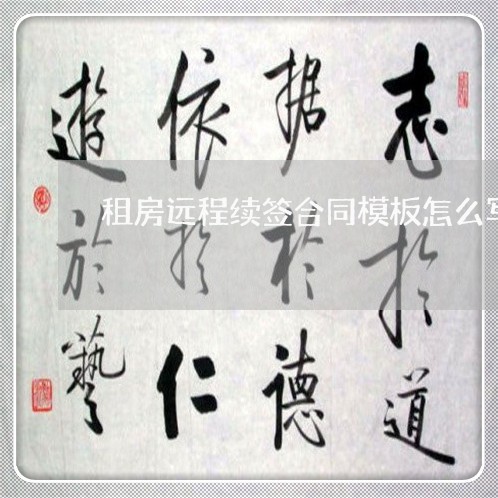 志於道
据於德
依於仁
遊於藝
租房远程续签合同模板怎么